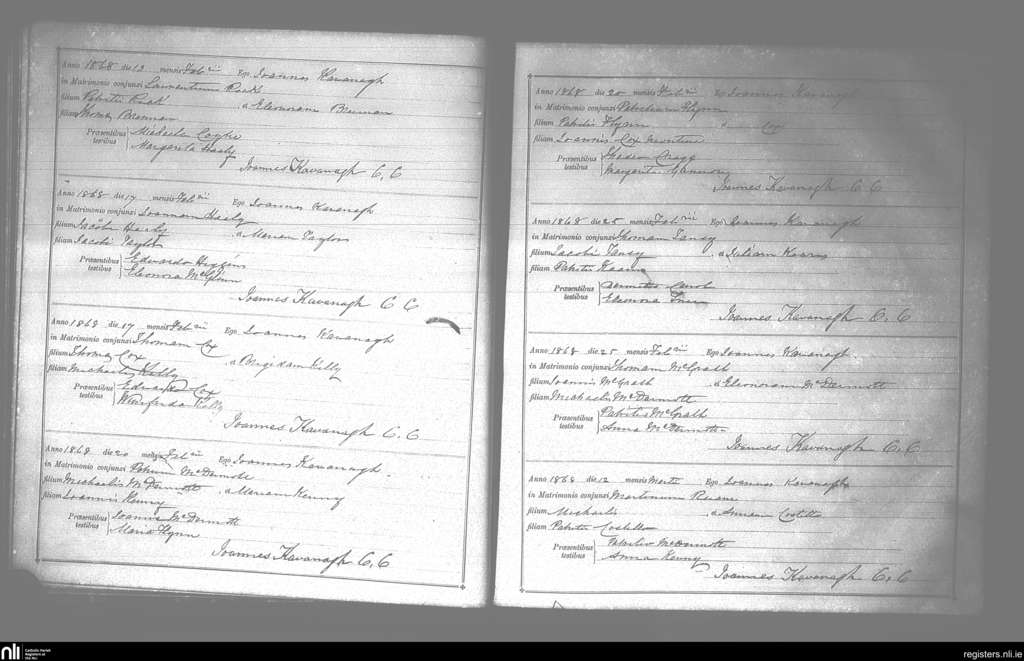 Anno 1868 die 13 mensis Feb ii Ego Joannes Kavanagh
in Matrimonio conjunxi Laurentium
filium Patritii a Eleonoram Brennan
filiam Thomae Brennan
Præsentibus testibus Michaele
Margarita Healy
Joannes Kavanagh C, C
Anno 1868 die 17 mensis Feb ii Ego Joannes Kavanagh
in Matrimonio conjunxi Joannem Healy
filium Jacobi Healy a Mariam Taylor
filiam Jacobi Taylor
Præsentibus testibus Edwardo Higgins
Eleonora McGlinn
Joannes Kavanagh C C
Anno 1868 die 17 mensis Feb ii Ego Joannes Kavanagh
in Matrimonio conjunxi Thomam Cox
filium Thomae Cox a Brigidam Kelly
filiam Michaelis Kelly
Præsentibus testibus Edwardo Cox
Winifreda Kelly
Joannes Kavanagh C. C
Anno 1868 die 20 mensis Feb ii Ego Joannes Kavanagh
in Matrimonio conjunxi McDermott
filium Michaelis McDermott a Mariam Kenny
filiam Joannis Kenny
Præsentibus testibus Joannes McDermott
Maria Flynn
Joannes Kavanagh C, C
Anno 1868 die 20 mensis Feb ii Ego Joannes Kavanagh
in Matrimonio conjunxi Patritium Flynn
filium Patritii Flynn a Cox
filiam Joannis Cox
Præsentibus testibus
Margarita
Joannes Kavanagh C C
Anno 1868 die 25 mensis Feb ii Ego Joannes Kavanagh
in Matrimonio conjunxi Thomam Tansy
filium Jacobi Tansy a Juliam Kearns
filiam Patritii
Præsentibus testibus
Eleonora
Joannes Kavanagh C. C
Anno 1868 die 25 mensis Feb ii Ego Joannes Kavanagh
in Matrimonio conjunxi Thomam McGrath
filium Joannis McGrath a Eleonoram McDermott
filiam Michaelis McDermott
Præsentibus testibus Patritio McGrath
Anna McDermott
Joannes Kavanagh C, C
Anno 1868 die 12 mensis Martii Ego Joannes Kavanagh
in Matrimonio conjunxi Martinum
filium Michaelis a Annam Costello
filiam Patritii Costello
Præsentibus testibus Patritio McDermott
Anna Kenny
Joannes Kavanagh C, C
nli Catholic Parish Registers at the NLI
registers.nli.ie